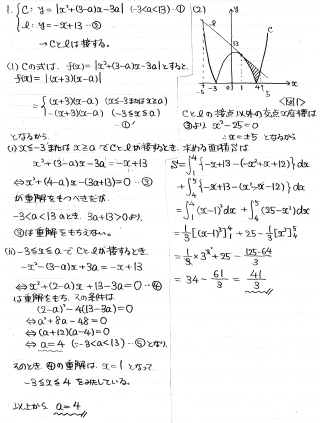 1. { C: y = |x²+(3-a)x-3a| (-3<a<13)…①
l: y = -x+13 …②
→ Cとlは接する。
(1) Cの式は、f(x) = |x²+(3-a)x-3a| とすると、
f(x) = |(x+3)(x-a)|
= { (x+3)(x-a) (x≤-3またはx≥a)
-(x+3)(x-a) (-3≤x≤a)
…①'
となるから、
(i) x≤-3またはx≥aでCとlが接するとき、
x²+(3-a)x-3a = -x+13
⇔ x²+(4-a)x-(3a+13)=0 …③
が重解をもつべきだが、
-3<a<13のとき、3a+13>0より、
③は重解をもちえない。
(ii) -3≤x≤aでCとlが接するとき、
-x²-(3-a)x+3a = -x+13
⇔ x²+(2-a)x+13-3a=0 …④
は重解をもち、その条件は
(2-a)²-4(13-3a)=0
⇔ a²+8a-48=0
⇔ (a+12)(a-4)=0
⇔ a=4 (∵-3<a<13) …⑤となり、
このとき、④の重解は、x=1となって
-3≤x≤4をみたしている。
以上から、a=4
(2)
y
l
C
13
-5 -3 0 1 4 5 x
<図1>
Cとlの接点以外の交点のx座標は
③より x²-25=0
∴x=±5 となるから、
求める面積Sは
S = ∫₁⁴{-x+13-(-x²+x+12)}dx
+∫₄⁵{-x+13-(x²-x-12)}dx
= ∫₁⁴(x-1)²dx + ∫₄⁵(25-x²)dx
= 1/3[(x-1)³]₁⁴ + 25 - 1/3[x³]₄⁵
= 1/3×3³+25 - (125-64)/3
= 34 - 61/3 = 41/3